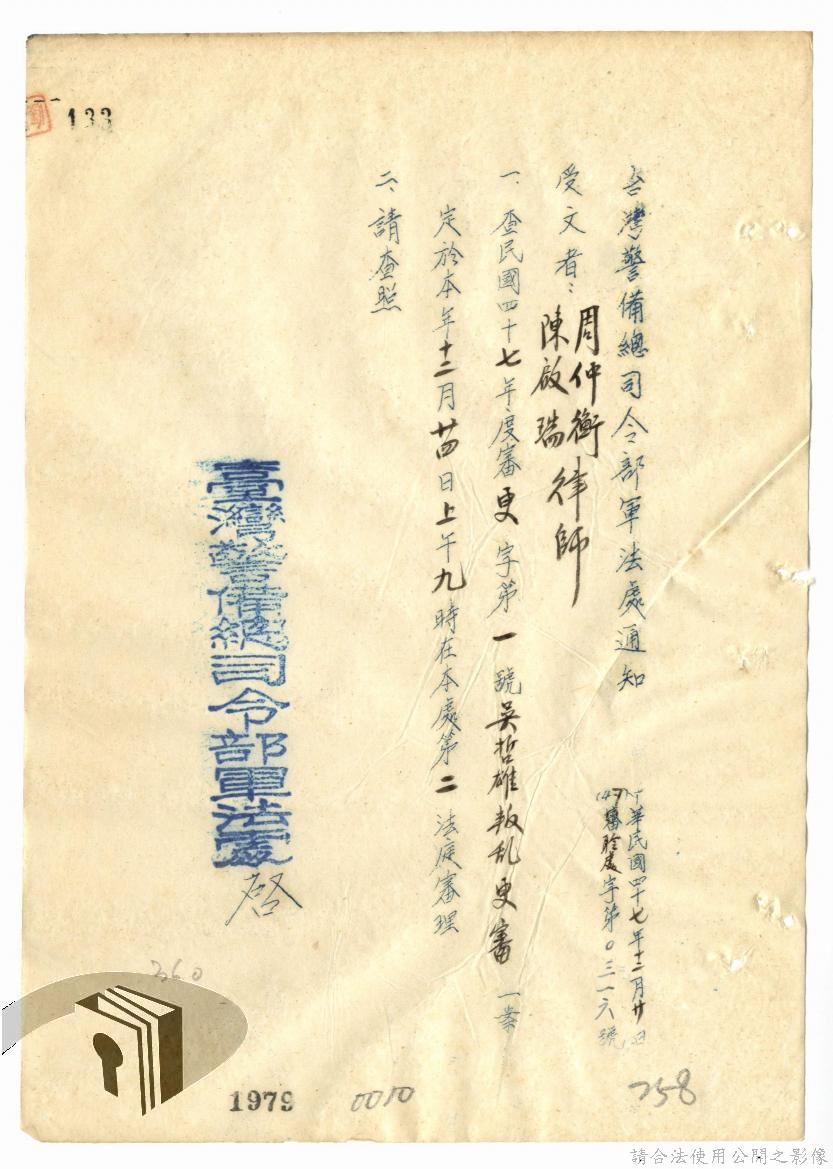 133
台灣警備總司令部軍法處通知
中華民國四十七年十二月廿日
(47)審聆處字第0三一六號
受文者：周仲衡 陳啟瑞 律師
一、查民國四十七年度審更字第一號吳哲雄叛乱更審一案
定於本年十二月廿四日上午九時在本處第二法庭審理
二、請查照
臺灣警備總司令部軍法處
啓
360
1979
0010
258
請合法使用公開之影像